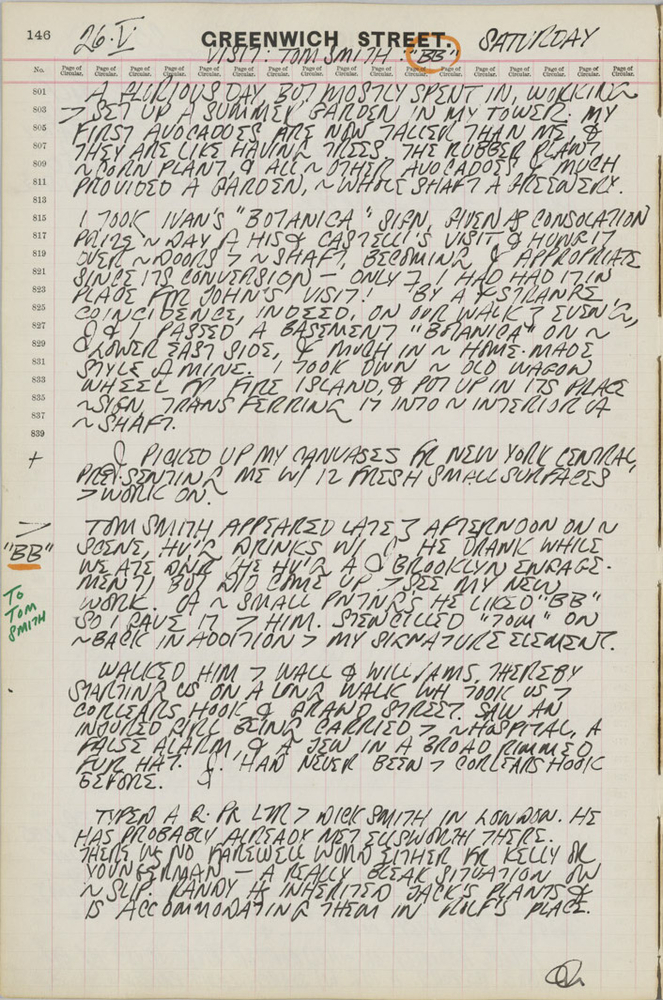 146
26·V
GREENWICH STREET.
SATURDAY
VISIT: TOM SMITH. "BB"
No. Page of Circular. Page of Circular. Page of Circular. Page of Circular. Page of Circular. Page of Circular. Page of Circular. Page of Circular. Page of Circular. Page of Circular. Page of Circular. Page of Circular. Page of Circular. Page of Circular. Page of Circular. Page of Circular.
801 A GLORIOUS DAY, BUT MOSTLY SPENT IN, WORKING
803 > SET UP A SUMMER GARDEN IN MY TOWER. MY
805 FIRST AVOCADOES ARE NOW TALLER THAN ME, &
807 THEY ARE LIKE HAVING TREES. THE RUBBER PLANT,
809 ~ CORN PLANT, & ALL ~ OTHER AVOCADOES, & MUCH
811 PROVIDED A GARDEN, ~ WHOLE SHAFT A GREENERY.
813
815 I TOOK IVAN'S "BOTANICA" SIGN, GIVEN AS CONSOLATION
817 PRIZE ~ DAY A HIS & CASTELLI'S VISIT & HUNG IT
819 OVER ~ DOORS > ~ SHAFT, BECOMING & APPROPRIATE
821 SINCE ITS CONVERSION — ONLY I HAD HAD IT IN
823 PLACE FOR JOHN'S VISIT! BY A STRANGE
825 COINCIDENCE, INDEED, ON OUR WALK EVEN'G,
827 & I PASSED A BASEMENT "BOTANICA" ON ~
829 LOWER EAST SIDE, & MUCH IN ~ HOME-MADE
831 STYLE A MINE. I TOOK DOWN ~ OLD WAGON
833 WHEEL FR FIRE ISLAND, & PUT UP IN ITS PLACE
835 ~ SIGN, TRANSFERRING IT INTO ~ INTERIOR OA
837 ~ SHAFT.
839
+ PICKED UP MY CANVASES FR NEW YORK CENTRAL,
PRESENTING ME W/ 12 FRESH SMALL SURFACES
> WORK ON.
> TOM SMITH APPEARED LATE AFTERNOON ON ~
"BB" SCENE, HV'G DRINKS W/ HE DRANK WHILE
WE ATE DNR. HE HV'G A BROOKLYN ENGAGE-
To MENT, BUT DID COME UP > SEE MY NEW
TOM WORK. OA ~ SMALL PNTNG'S HE LIKED "BB"
SMITH SO I GAVE IT > HIM. STENCILLED "TOM" ON
~ BACK IN ADDITION > MY SIGNATURE ELEMENT.
WALKED HIM > WALL & WILLIAMS, THEREBY
STARTING US ON A LONG WALK WH TOOK US >
CORLEARS HOOK & GRAND STREET. SAW AN
INJURED GIRL BEING CARRIED > ~ HOSPITAL, A
FALSE ALARM, & A JEW IN A BROAD RIMMED
FUR HAT. HAD NEVER BEEN > CORLEARS HOOK
BEFORE.
TYPED A R. PR LTR > DICK SMITH IN LONDON. HE
HAS PROBABLY ALREADY MET ELLSWORTH THERE.
THERE WS NO FAREWELL WORD EITHER FR KELLY OR
YOUNGERMAN — A REALLY BLEAK SITUATION ON
~ SLIP. RANDY HS INHERITED JACK'S PLANTS &
IS ACCOMMODATING THEM IN ROLF'S PLACE.